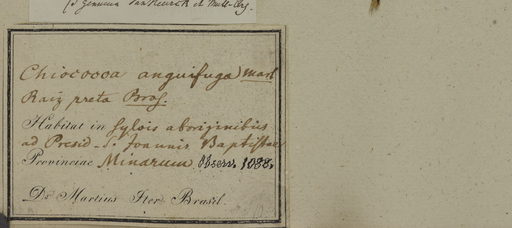 genuina Van Heurck et Müll-Arg.
Chiococca anguifuga Mart
Raiz preta Bras.
Habitat in sylvis aboriginibus
ad Presid. S. Joannis Baptistae
Provinciae Minarum Observ. 1088.
Dr Martius Iter Brasil.